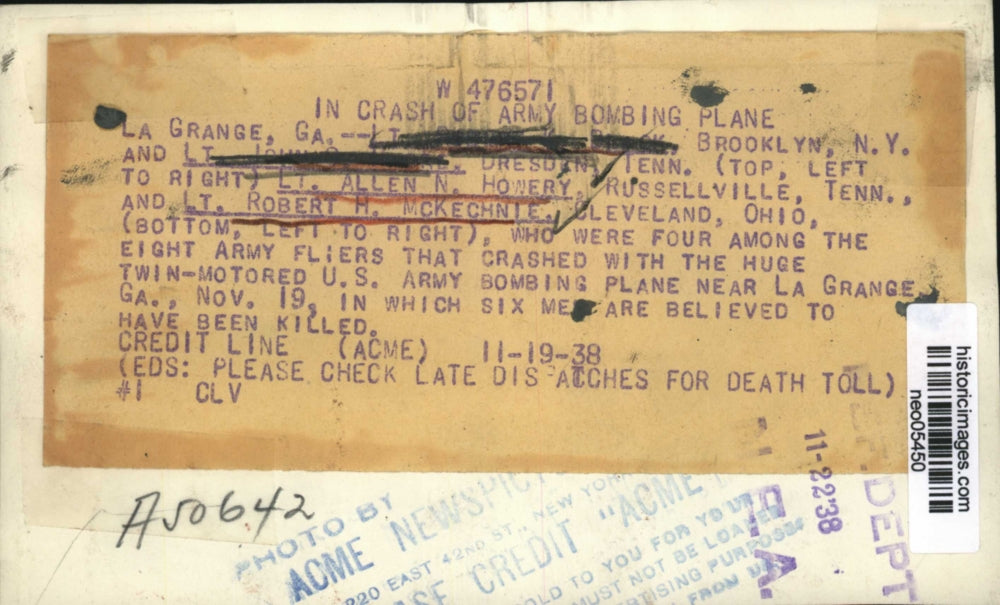 W 476571
IN CRASH OF ARMY BOMBING PLANE
LA GRANGE, GA.--LT. BROOKLYN, N.Y.
AND LT. DRESDEN, TENN. (TOP, LEFT
TO RIGHT) LT. ALLEN N. HOWERY, RUSSELLVILLE, TENN.,
AND LT. ROBERT H. MCKECHNIE, CLEVELAND, OHIO,
(BOTTOM, LEFT TO RIGHT), WHO WERE FOUR AMONG THE
EIGHT ARMY FLIERS THAT CRASHED WITH THE HUGE
TWIN-MOTORED U.S. ARMY BOMBING PLANE NEAR LA GRANGE
GA., NOV. 19, IN WHICH SIX MEN ARE BELIEVED TO
HAVE BEEN KILLED.
CREDIT LINE (ACME) 11-19-38
(EDS: PLEASE CHECK LATE DISPATCHES FOR DEATH TOLL)
#1 CLV
historicimages.com
neo05450
A50642
11-22'38
DEPT
N.E.A.
PHOTO BY
ACME NEWSPIC
220 EAST 42ND ST., NEW YORK
CREDIT "ACME
TO YOU FOR YOUR
MUST NOT BE LOANED
PURPOSES
FROM US